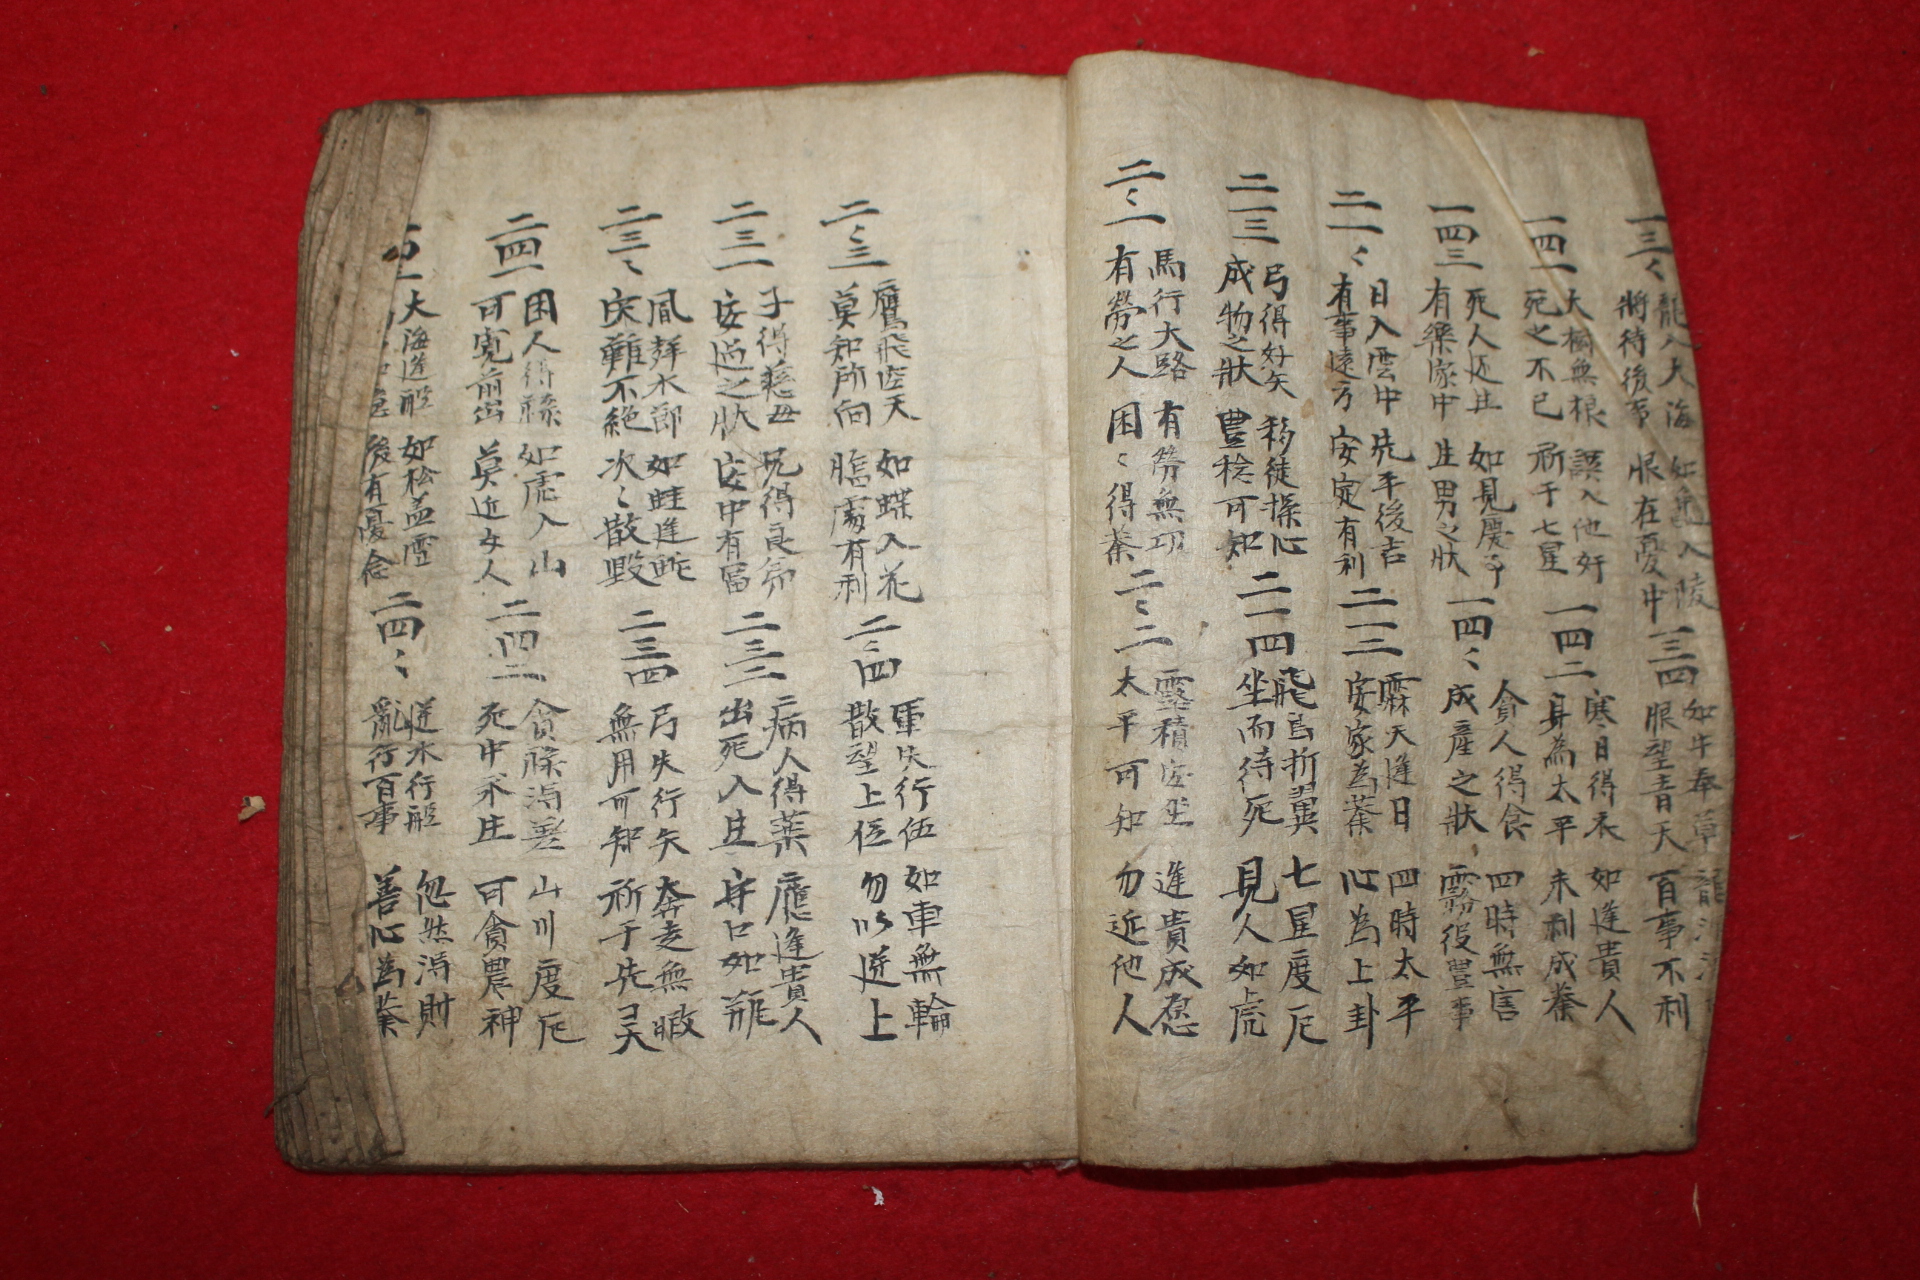 一三〻 龍入大海 如龜入陵
將待後事 恨在憂中
一三四 如牛奉草
恨望青天 百事不利
一四一 大樹無根 誤入他奸
死之不已 祈于七星
一四二 寒日得衣 如逢貴人
身為太平 未利成
一四三 死人还生 如見慶事
有樂家中 生男之狀
一四〻 貪人得食 四時無害
成產之狀 霧後豊事
二一〻 日入雲中 先平後吉
有事遠方 安定有利
二一二 霖天逢日 四時太平
安家為 心為上卦
二一三 弓得好矢 移徒操心
成物之狀 豊稔可知
二一四 飛鳥折翼 七星度厄
坐而待死 見人如虎
二〻一 馬行大路 有勞無功
有勞之人 困〻得
二〻二 露積 逢貴成
太平可知 勿近他人
二〻三 鷹飛空天 如蝶入花
莫知所向 臨處有利
二〻四 軍失行伍 如車無輪
散望上 勿以逆上
二三一 子得慈母 兄得良弟
安過之狀 安中有
二三二 病人得藥 應逢貴人
出死入生 守口如甁
二三〻 風 水 如蛙逢蛇
災難不絕 次〻散毀
二三四 弓失行矢 奔走無暇
無用可知 祈于先灵
二四一 困人得祿 如虎入山
可寬前 莫近女人
二四二 貪 得 山川度厄
死中 生 可貪農神
一 大海逢 如松盖雪
後有憂念
二四〻 逆水行船 忽然得財
亂行百事 善心為